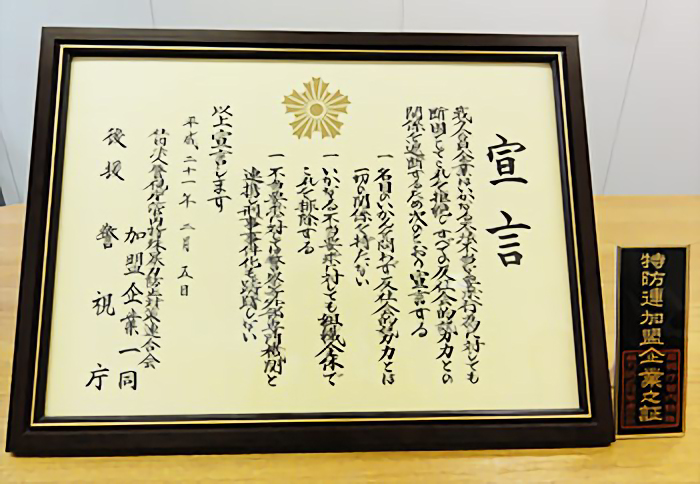 宣言
我々会員企業はいかなる不法不当な要求行為に対しても
断固としてこれを拒絶しすべての反社会的勢力との
関係を遮断するため次のとおり宣言する
一 名目のいかんを問わず反社会的勢力とは
一切の関係を持たない
一 いかなる不当要求に対しても組織全体で
これを排除する
一 不当要求に対しては警察や外部専門機関と
連携し刑事事件化も躊躇しない
以上宣言します
平成二十一年二月五日
警視庁管内特殊暴力防止対策連合会
加盟企業一同
後援 警視庁
特防連加盟企業之証